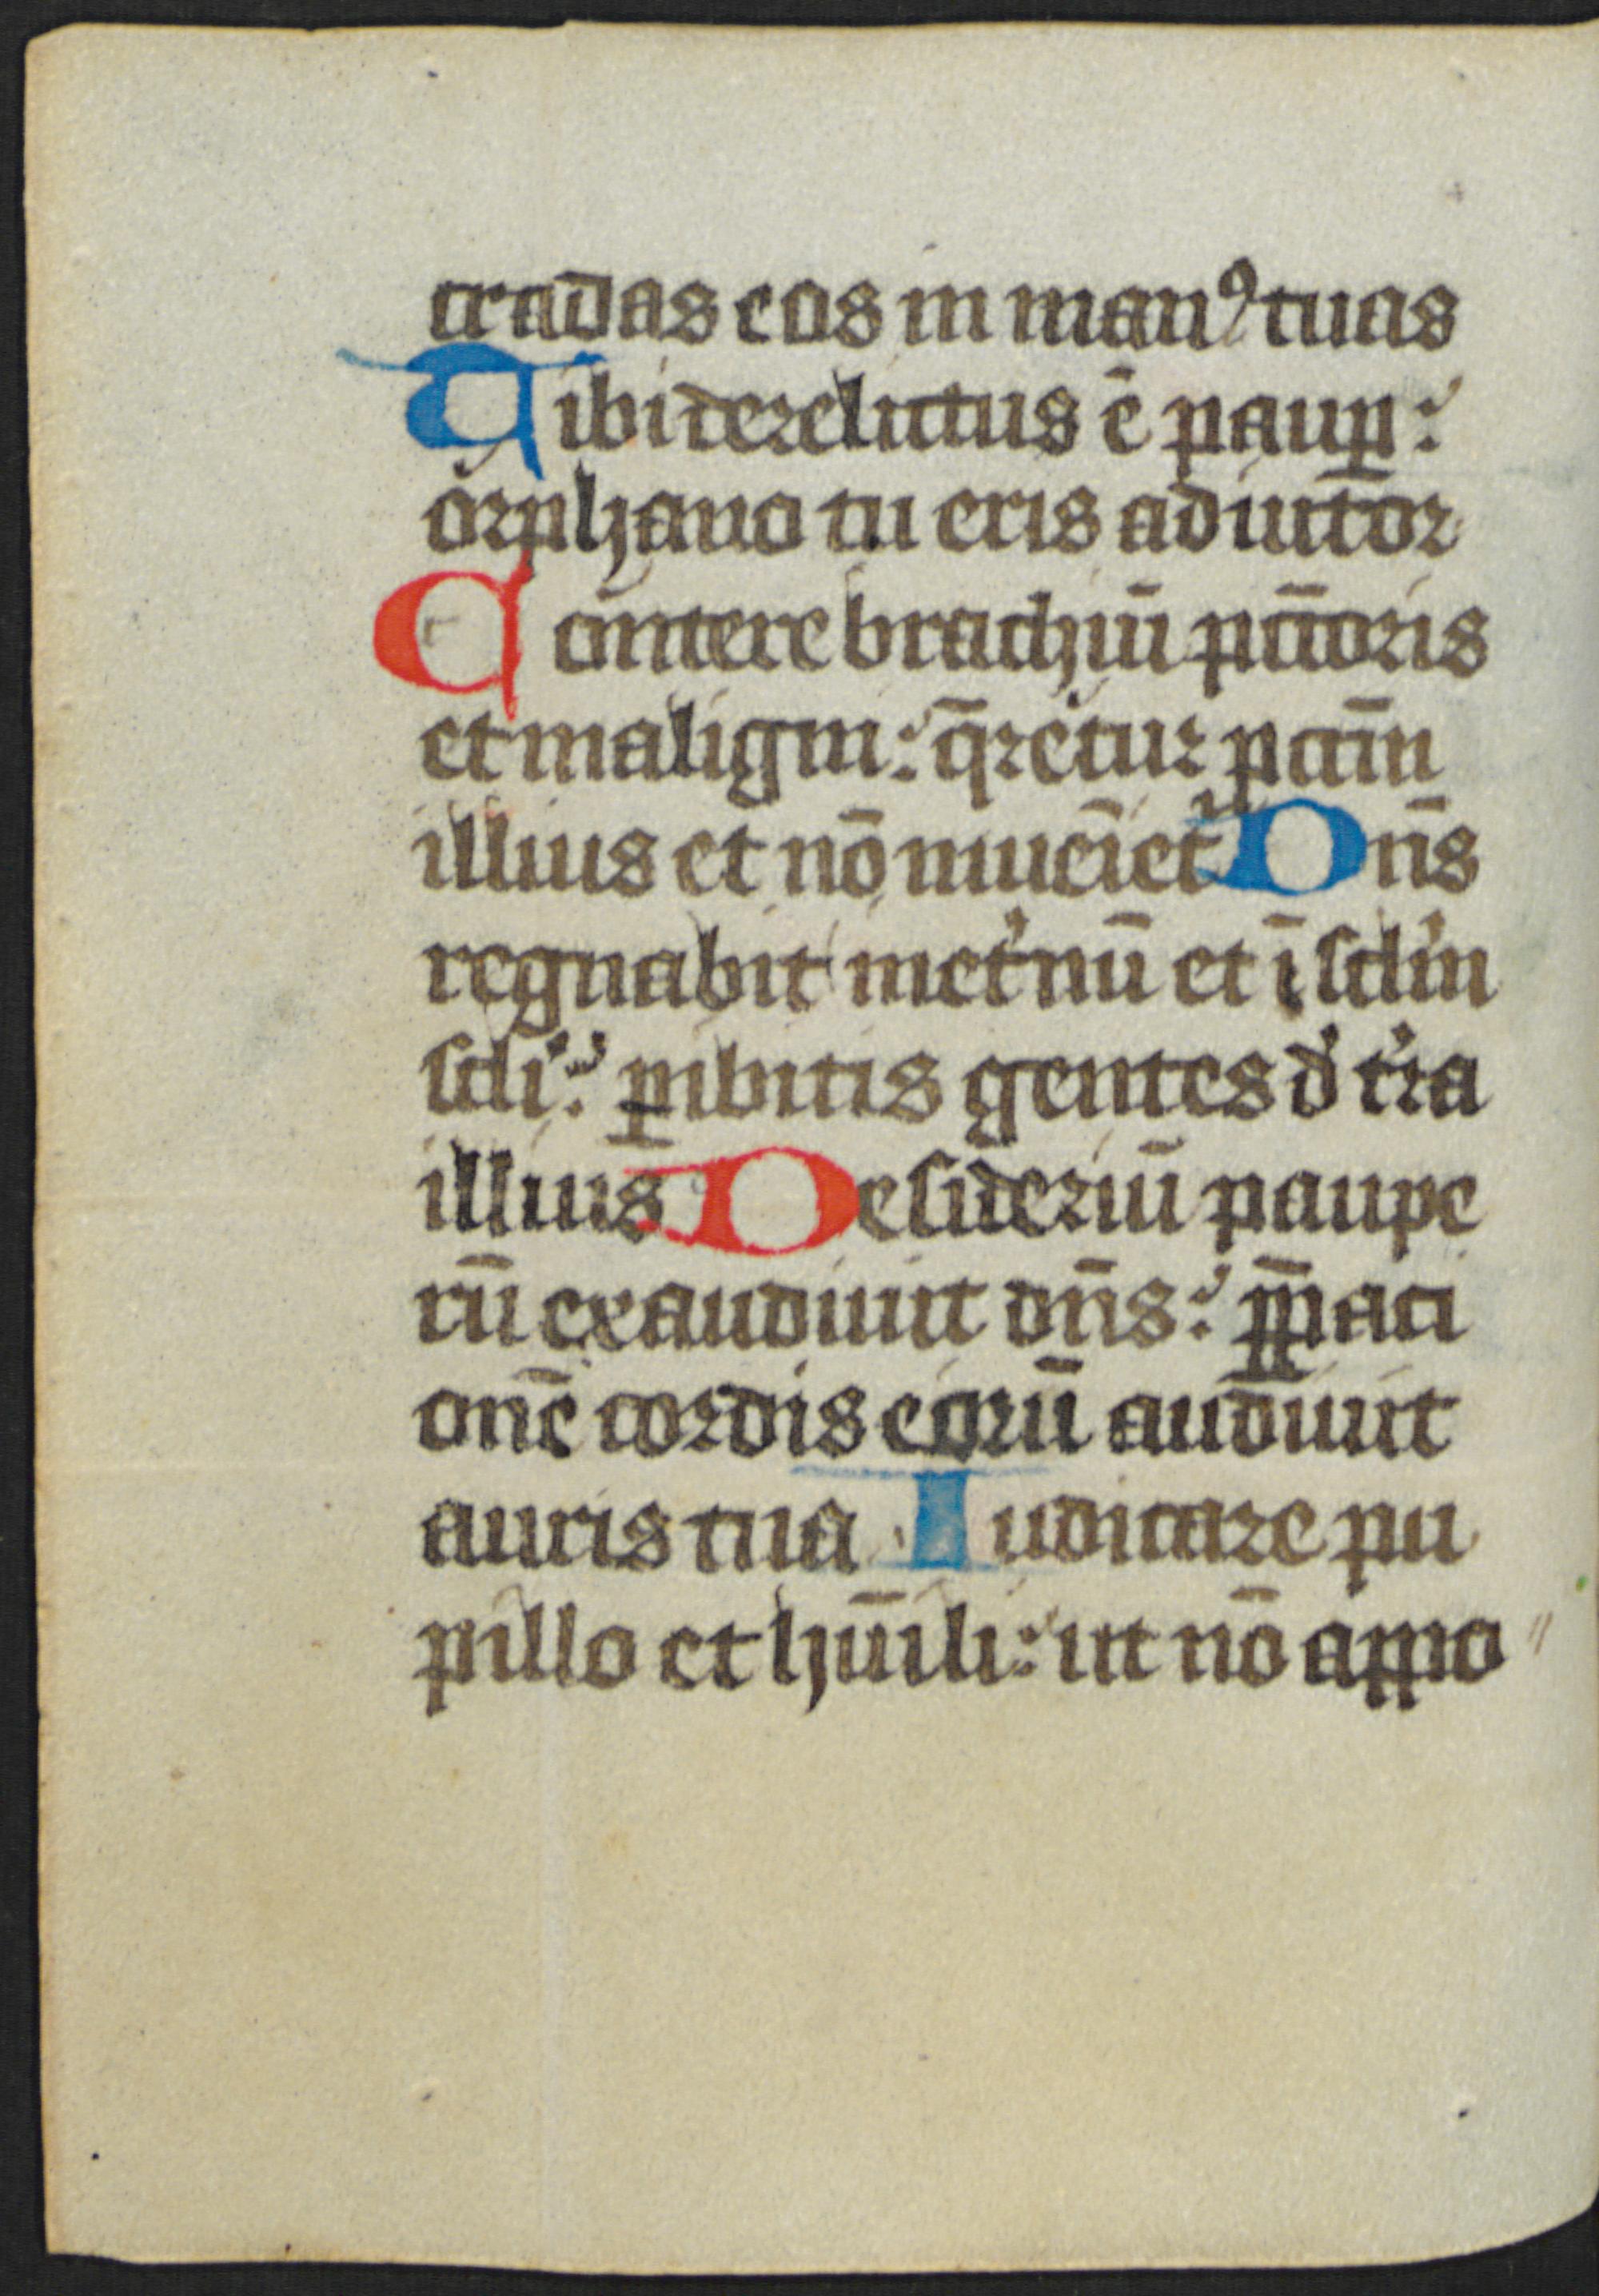 tradas eos in manꝰ tuas
Tibi derelictus ē paup̲:
orphano tu eris adiutor
Contere brachiū pcc̄oris
et maligni: q̄retur pccm̄
illius et nō inueīet᷑ Dn̄s
regnabit inet'nū et ī sclm̄
scli: ꝑibitis gentes d' tr̄a
illius Desideriū paupe
rū exaudiuit dn̄s: p̄paci
onē cordis eorū audiuit
auris tua Iudicare pu
pillo et hūili: ut nō appo